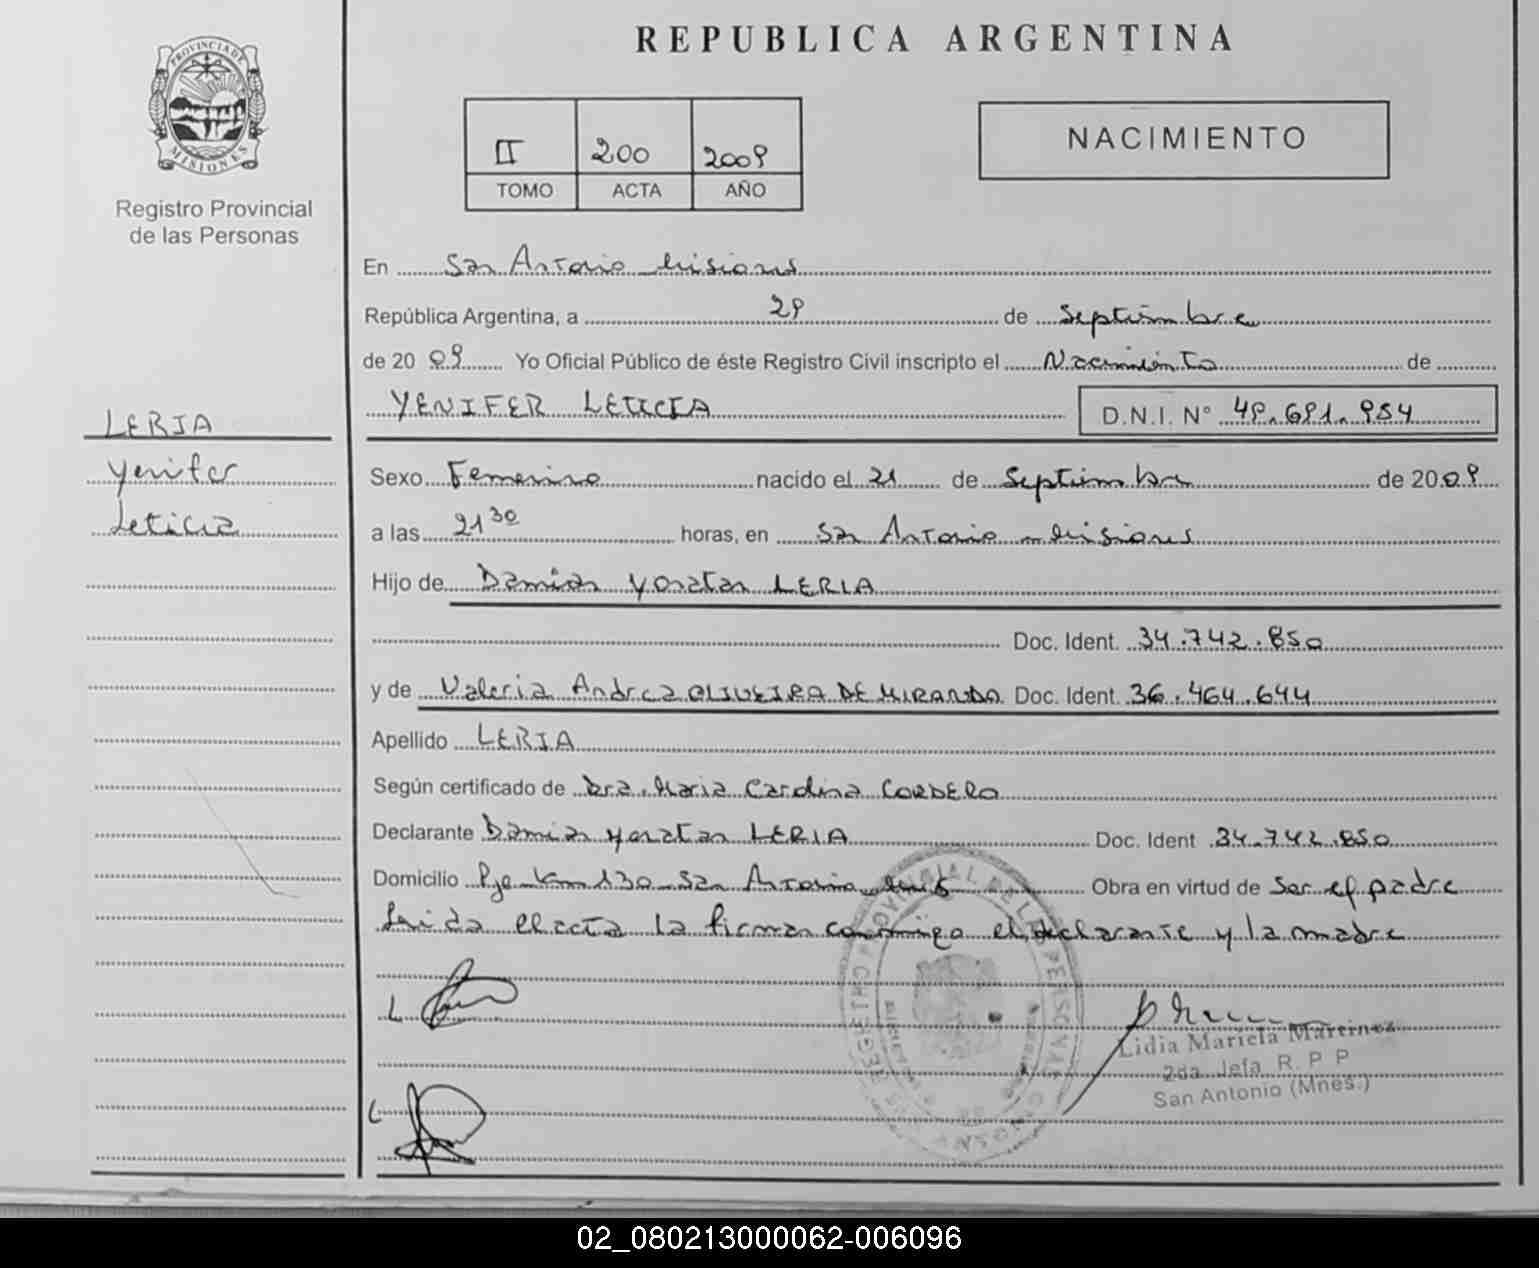 REPUBLICA ARGENTINA
PROVINCIA DE MISIONES
Registro Provincial
de las Personas
II 200 2009
TOMO ACTA AÑO
NACIMIENTO
En San Antonio Misiones
República Argentina, a 29 de Septiembre
de 20 09 Yo Oficial Público de éste Registro Civil inscripto el Nacimiento de
YENIFER LETICIA D.N.I. N° 49.691.954
LERIA
Yenifer
Leticia
Sexo Femenino nacido el 21 de Septiembre de 2009
a las 21 30 horas, en San Antonio - Misiones
Hijo de Damian Yonatan LERIA
Doc. Ident. 34.742.850
y de Valeria Andrea OLIVEIRA DE MIRANDA Doc. Ident. 36.464.644
Apellido LERIA
Según certificado de Dra. Maria Carolina CORDERO
Declarante Damian Yonatan LERIA Doc. Ident 34.742.850
Domicilio Pje Km 130 San Antonio Mnes Obra en virtud de Ser el padre
Leida el acta la firman conmigo el declarante y la madre
REGISTRO PROVINCIAL DE LAS PERSONAS
Lidia Mariela Martinez
2da. Jefa R. P P
San Antonio (Mnes.)
02_080213000062-006096